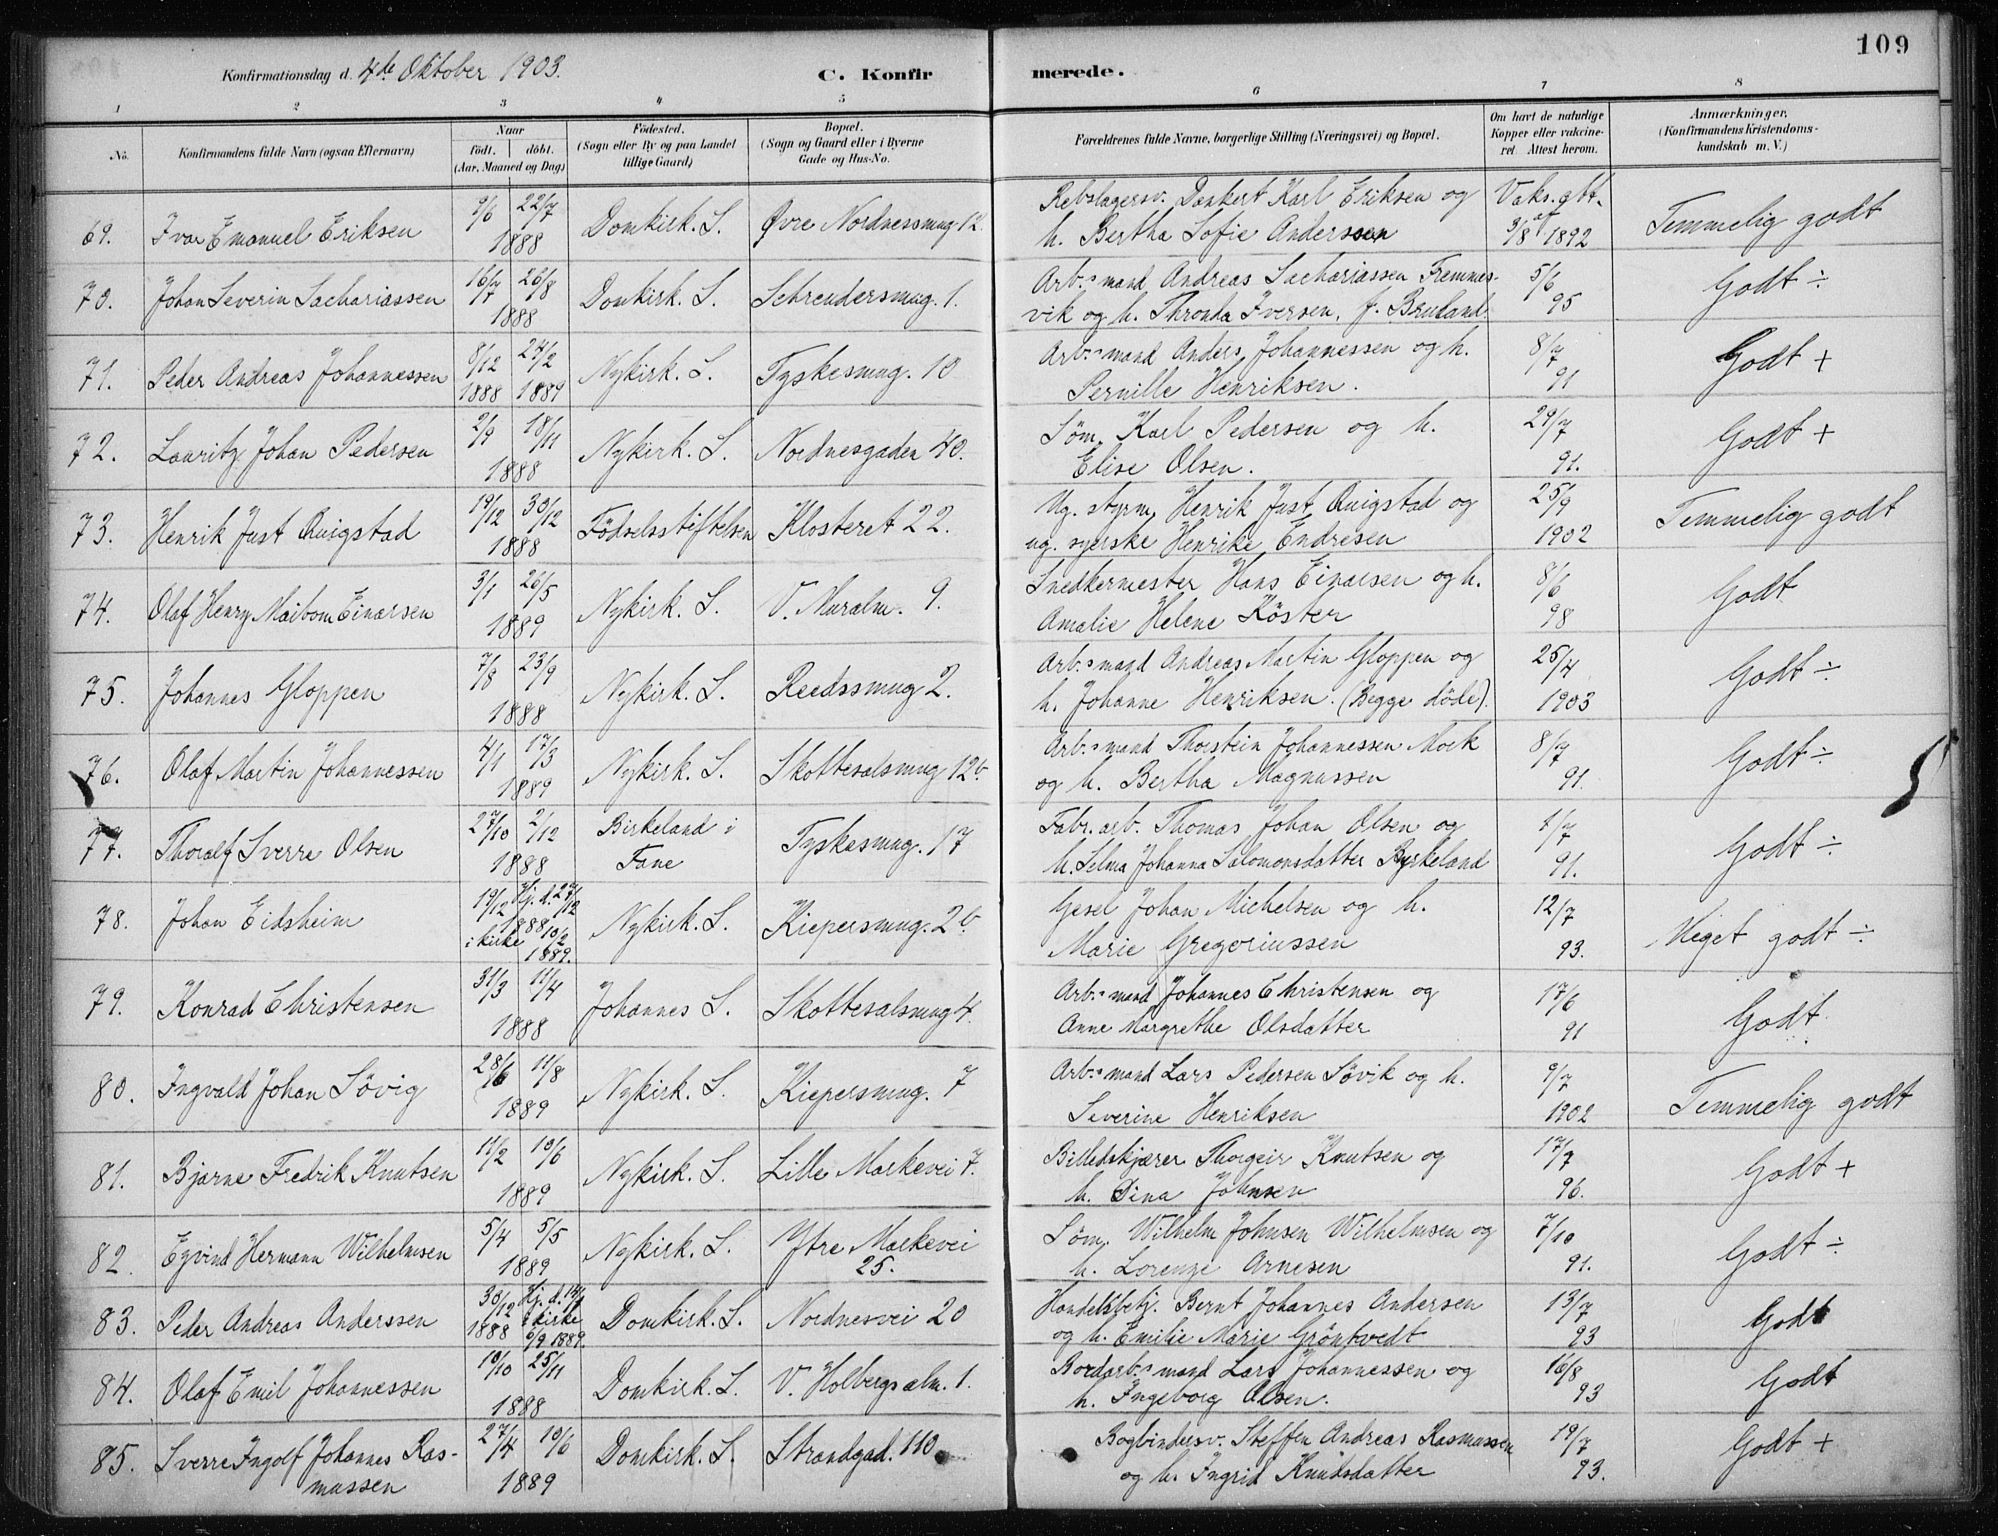 109
Konfirmationsdag d. 4de Oktober 1903.
C. Konfirmerede.
1 2 3 4 5 6 7 8
No. Konfirmandens fulde Navn (ogsaa Efternavn) Naar født, døbt. (Aar, Maaned og Dag) Fødested. (Sogn eller By og paa Landet tillige Gaard) Bopæl. (Sogn og Gaard eller i Byerne Gade og Hus-No. Forældrenes fulde Navne, borgerlige Stilling (Næringsvei) og Bopæl. Om havt de naturlige Kopper eller vakcineret. Attest herom. Anmærkninger. (Konfirmandens Kristendomskundskab m. V.)
69. Ivar Emanuel Eriksen 9/6 22/7 1888 Domkirk. S. Øvre Nordnessmug 12. Rebslagersv. Dankert Karl Eriksen og Vaks. att.
h. Bertha Sofie Anderssen 3/8 1892 Temmelig godt
70. Johan Severin Sachariassen 16/7 26/8 1888 Domkirk. S. Schreudersmug. 1. Arb.smand Andreas Sachariassen Fremmes- 5/6
vik og h. Thronda Iversen, f. Bruland 95 Godt ÷
71. Peder Andreas Johannessen 8/12 1888 24/2 1889 Nykirk. S. Tyskesmug. 10 Arb.smand Anders Johannessen og h. 8/7
Pernille Henriksen. 91 Godt +
72. Lauritz Johan Pedersen 2/9 18/11 1888 Nykirk. S. Nordnesgaden 40. Søm. Karl Pedersen og h. 29/7
Elise Olsen. 91. Godt +
73. Henrik Just Qvigstad 19/12 30/12 1888 Fødselsstiftelsen Klosteret 22. Ug. styrm. Henrik Just Qvigstad og 25/9
ug. syerske Henrike Endresen 1902 Temmelig godt
74. Olaf Henry Maibom Einarsen 3/1 26/5 1889 Nykirk. S. V. Muralm. 9. Snedkermester Hans Einarsen og h. 8/6
Amalie Helene Köster 98 Godt
75. Johannes Gloppen 7/8 23/9 1888 Nykirk. S. Reedssmug 2. Arb.smand Andreas Martin Gloppen og 25/4
h. Johanne Henriksen. (Begge døde). 1903 Godt ÷
76. Olaf Martin Johannessen 4/1 17/3 1889 Nykirk. S. Skottesalsmug 12b. Arb.smand Thorstein Johannessen Mork 8/7
og h. Bertha Magnussen 91. Godt ÷
77. Thoralf Sverre Olsen 27/10 2/12 1888 Birkeland i Fane Tyskesmug. 17 Fabr. arb. Thomas Johan Olsen og 1/7
h. Selma Johanna Salomonsdatter Byrkeland 91. Godt ÷
78. Johan Eidsheim 19/12 Hj. d. 27/12 1888 i kirke 10/2 1889. Nykirk. S. Kiepersmug. 2b. Gesel Johan Michelsen og h. 12/7
Marie Gregoriussen 93. Meget godt ÷
79. Konrad Christensen 31/3 11/4 1888 Johannes S. Skottesalsmug 4. Arb.smand Johannes Christensen og 17/6
Anne Margrethe Olsdatter 91 Godt
80. Ingvald Johan Søvig 28/6 11/8 1889 Nykirk. S. Kiepersmug. 7 Arb.smand Lars Pedersen Søvik og h. 9/7
Severine Henriksen 1902 Temmelig godt
81. Bjarne Fredrik Knutsen 11/2 10/6 1889 Nykirk. S. Lille Markevei 7. Billedskjærer Thorgeir Knutsen og 17/7
h. Dina Johnsen 96. Godt +
82. Eyvind Hermann Wilhelmsen 5/4 5/5 1889 Nykirk. S. Ytre Markevei 25. Søm. Wilhelm Johnsen Wilhelmsen og 7/10
h. Lorenze Arnesen 91. Godt ÷
83. Peder Andreas Anderssen 30/12 1888 Hj. d. 14/1 i kirke 6/9 1889. Domkirk. S. Nordnesvei 20 Handelsbetj. Bernt Johannes Andersen 13/7
og h. Emilie Marie Grøntvedt 93 Godt
84. Olaf Emil Johannessen 10/10 25/11 1888 Domkirk. S. V. Holbergsalm. 1. Bordarb.smand Lars Johannessen og 16/8
h. Ingeborg Olsen. 93 Godt
85. Sverre Ingolf Johannes Rasmussen 27/4 10/6 1889 Domkirk. S. Strandgad. 110 Bogbindersv. Steffen Andreas Rasmussen 19/7
og h. Ingrid Knudsdatter 93. Godt +